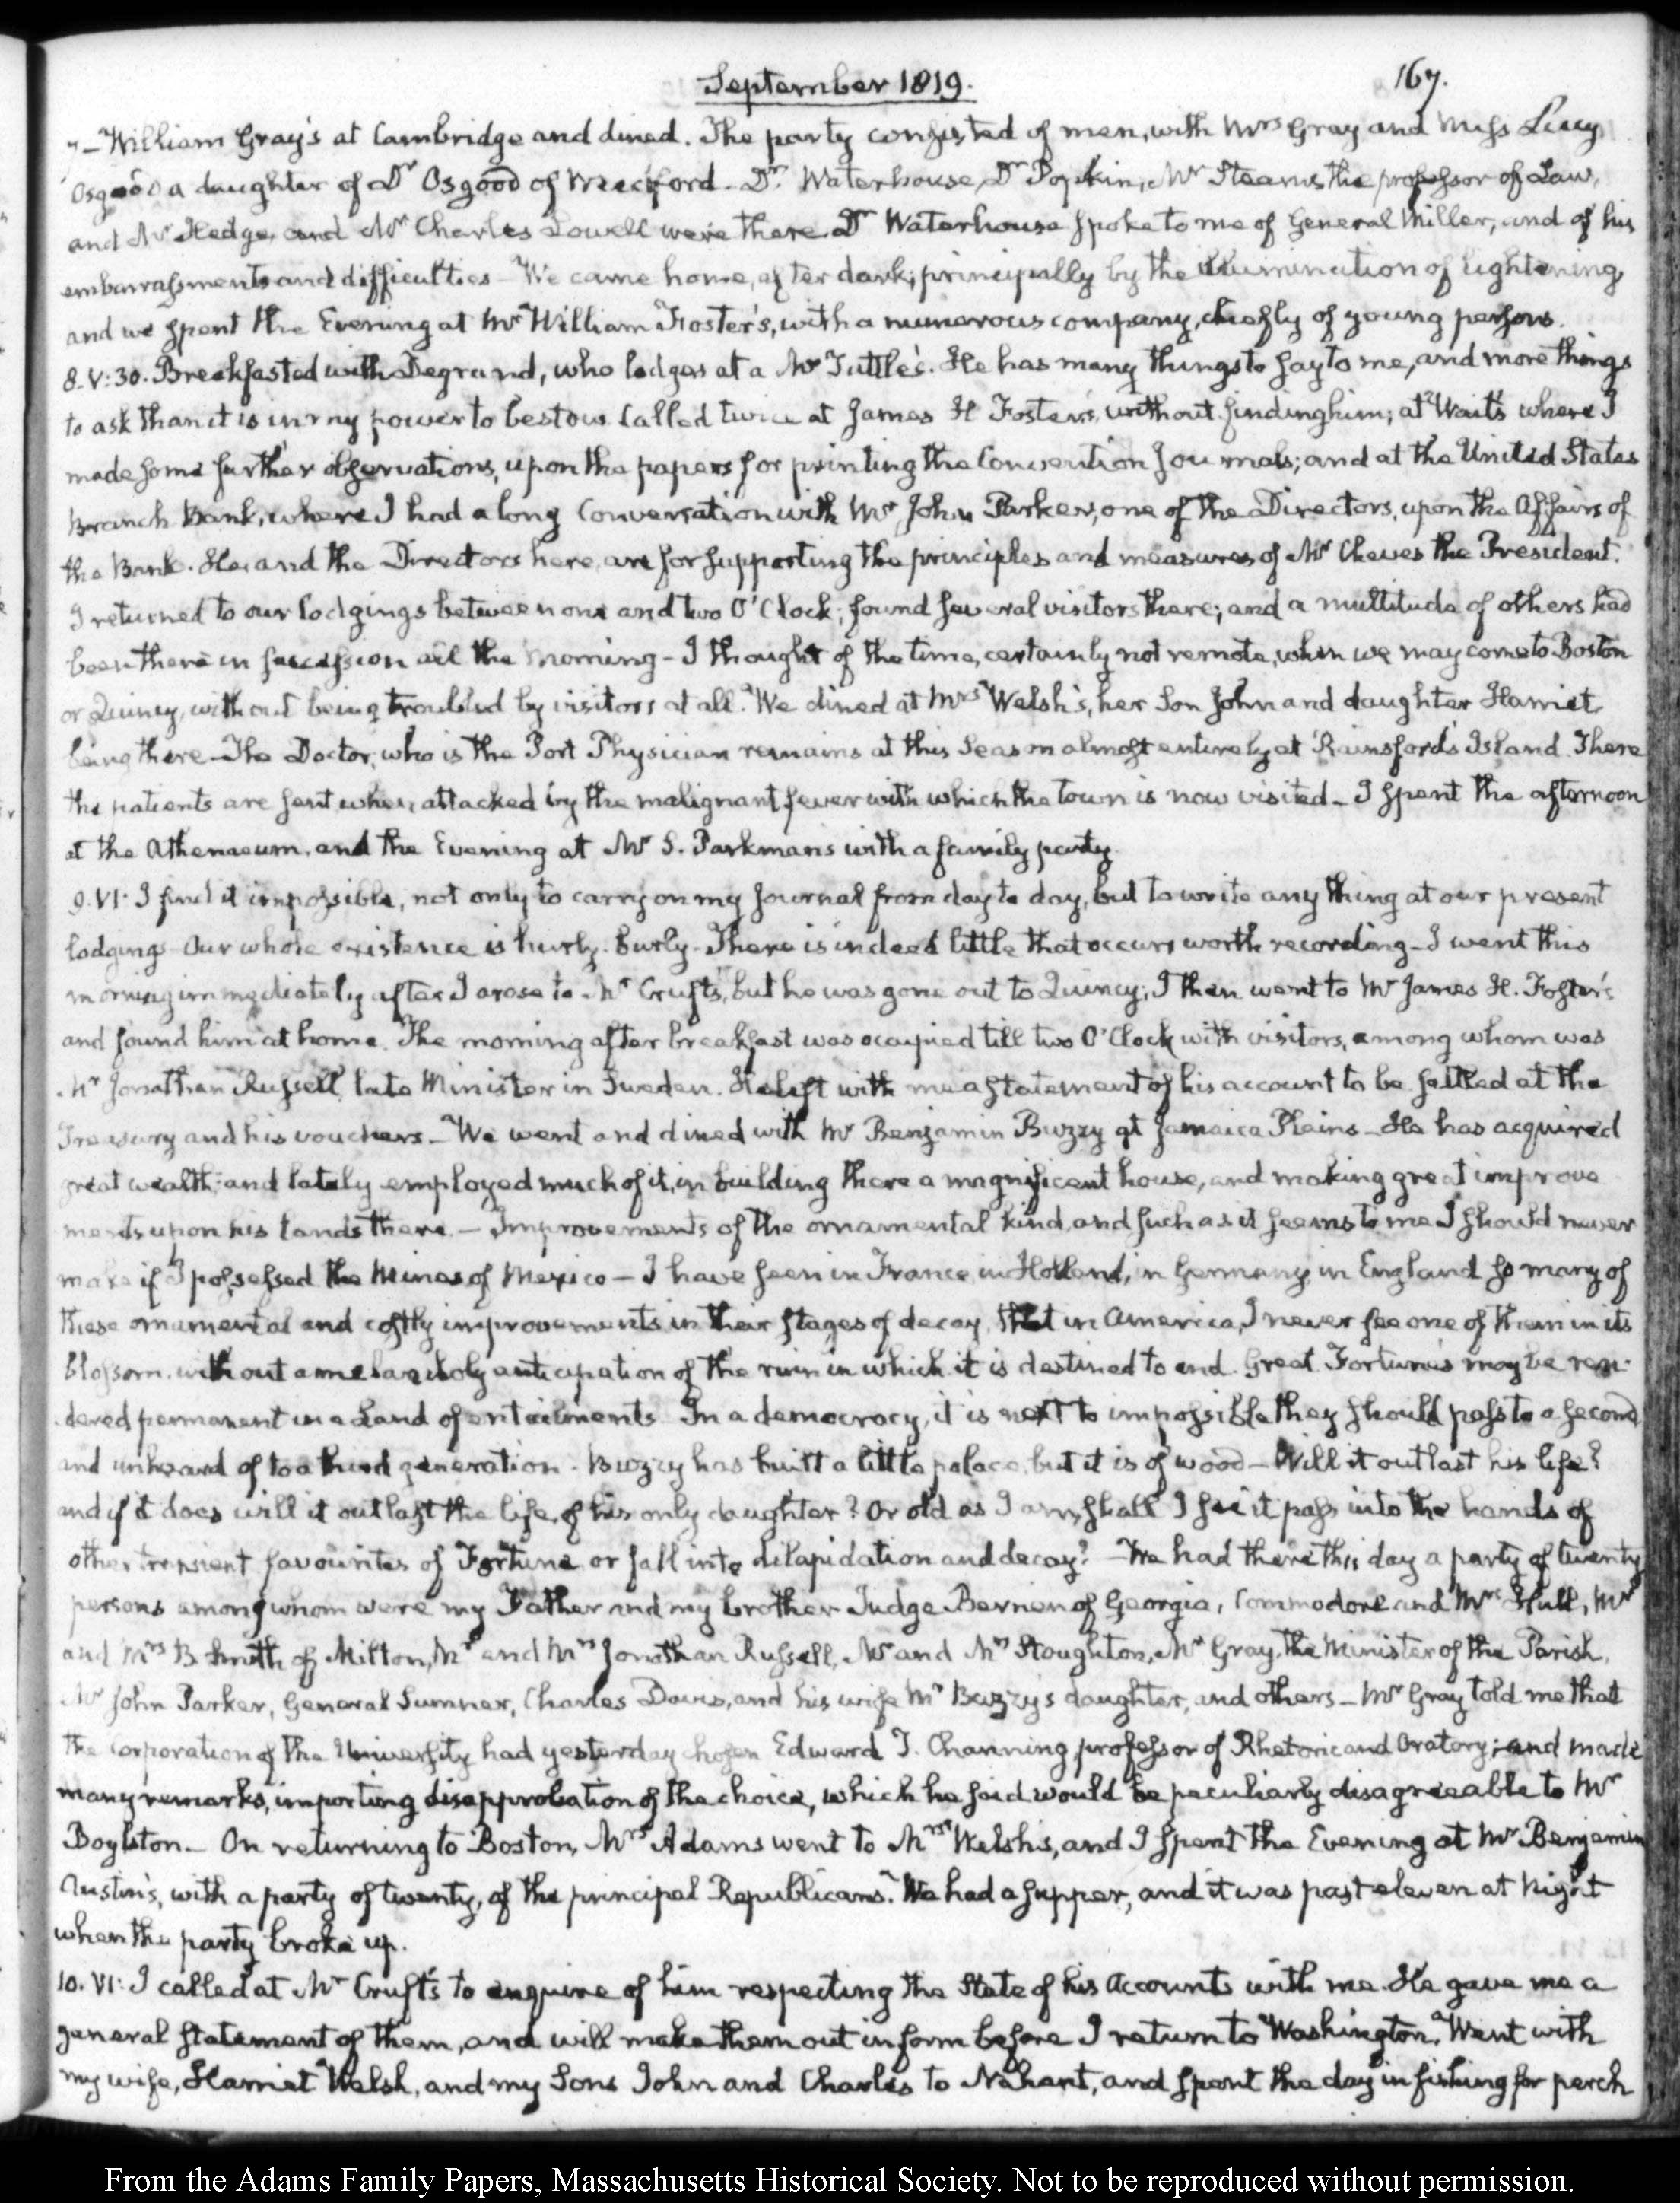 September 1819.
167.
7 – William Gray's at Cambridge and dined. The party consisted of men, with Mrs Gray and Miss Lucy
Osgood a daughter of Dr Osgood of Medford. Dr Waterhouse, Dr Popkin, Mr Stearns the professor of Law,
and Mr Hedge, and Mr Charles Lowell were there. Dr Waterhouse spoke to me of General Miller, and of his
embarrassments and difficulties – We came home, after dark, principally by the illumination of lightening,
and we spent the Evening at Mr William Foster's, with a numerous company, chiefly of young persons.
8. V:30. Breakfasted with Degrand, who lodges at a Mr Tuttle's. He has many things to say to me, and more things
to ask than it is in my power to bestow. Called twice at James H Foster's, without finding him; at Wait's where I
made some further observations, upon the papers for printing the Convention Journals; and at the United States
Branch Bank, where I had a long Conversation with Mr John Parker, one of the Directors, upon the Affairs of
the Bank. He and the Directors here, are for supporting the principles and measures of Mr Cheves the President.
I returned to our lodgings between one and two O'Clock; found several visitors there; and a multitude of others had
been there in succession all the morning – I thought of the time, certainly not remote, when we may come to Boston
or Quincy, without being troubled by visitors at all. We dined at Mrs Welsh's, her Son John and daughter Harriet
being there – The Doctor, who is the Port Physician remains at this Season almost entirely at Rainsford's Island. There
the patients are sent when attacked by the malignant fever with which the town is now visited – I spent the afternoon
at the Athenaeum, and the Evening at Mr S. Parkman's with a family party.
9. VI: I find it impossible, not only to carry on my Journal from day to day, but to write any thing at our present
lodgings – Our whole existence is hurly-burly – There is indeed little that occurs worth recording – I went this
morning immediately after I arose to Mr Cruft's, but he was gone out to Quincy; I then went to Mr James H. Foster's
and found him at home. The morning after breakfast was occupied till two O'Clock with visitors, among whom was
Mr Jonathan Russell, late Minister in Sweden. He left with me a statement of his account to be settled at the
Treasury and his vouchers – We went and dined with Mr Benjamin Buzzy at Jamaica Plains – He has acquired
great wealth, and lately employed much of it, in building there a magnificent house, and making great improve
ments upon his lands there. – Improvements of the ornamental kind, and such as it seems to me I should never
make if I possessed the Mines of Mexico – I have seen in France, in Holland, in Germany, in England so many of
these ornamental and costly improvements in their stages of decay, that in America, I never see one of them in its
blossom, without a melancholy anticipation of the ruin in which it is destined to end. Great Fortunes may be ren-
dered permanent in a Land of entailments. In a democracy, it is next to impossible they should pass to a second
and unheard of to a third generation. Buzzy has built a little palace, but it is of wood – Will it outlast his life?
and if it does will it outlast the life, of his only daughter? Or old as I am, shall I see it pass into the hands of
other transient favourites of Fortune or fall into dilapidation and decay? – We had there this day a party of twenty
persons among whom were my Father and my brother Judge Berrien of Georgia, Commodore and Mrs Hull, Mr
and Mrs B Smith of Milton, Mr and Mrs Jonathan Russell, Mr and Mrs Stoughton, Mr Gray, the Minister of the Parish,
Mr John Parker, General Sumner, Charles Davis, and his wife Mr Buzzy's daughter, and others – Mr Gray told me that
the Corporation of the University had yesterday chosen Edward T. Channing professor of Rhetoric and Oratory; and made
many remarks, importing disapprobation of the choice, which he said would be peculiarly disagreeable to Mr
Boylston – On returning to Boston, Mrs Adams went to Mrs Welsh's, and I spent the Evening at Mr Benjamin
Austin's, with a party of twenty, of the principal Republicans. We had a supper, and it was past eleven at night
when the party broke up.
10. VI: I called at Mr Cruft's to enquire of him respecting the State of his Accounts with me. He gave me a
general statement of them, and will make them out in form before I return to Washington. Went with
my wife, Harriet Welsh, and my Sons John and Charles to Nahant, and spent the day in fishing for perch
From the Adams Family Papers, Massachusetts Historical Society. Not to be reproduced without permission.